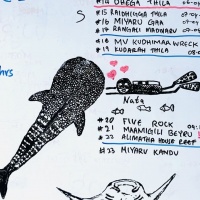 #14 OMEGA THILA
#15 RAIDHIGGA THILA 07-04
S #16 MIYARU GAA 07-0
#17 RANGALI MADIVARU 07-
#18 MV KUDHIMAA WRECK
#19 KUDARAH THILA 08-
hrs
Nata
#20 FIVE ROCK 09
#21 MAAMIGILI BEYRU
#22 ALIMATHA HOUSE REEF
#23 MIYARU KANDU